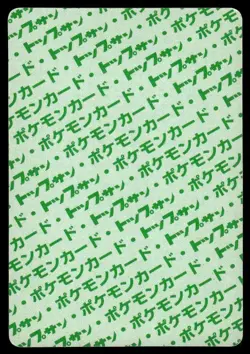 トップサン・ポケモンカード・トップサン
ポケモンカード・トップサン・ポケモンカード
トップサン・ポケモンカード・トップサン
ポケモンカード・トップサン・ポケモンカード
トップサン・ポケモンカード・トップサン
ポケモンカード・トップサン・ポケモンカード
トップサン・ポケモンカード・トップサン
ポケモンカード・トップサン・ポケモンカード